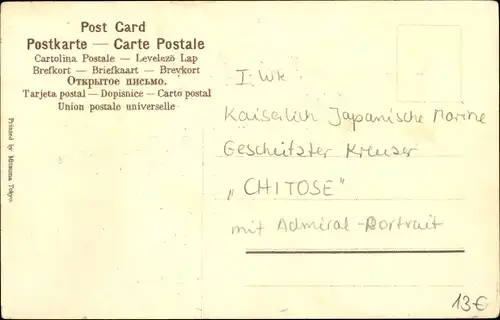 Post Card
Postkarte — Carte Postale
Cartolina Postale — Levelező Lap
Brefkort — Briefkaart — Brevkort
Открытое письмо.
Tarjeta postal — Dopisnice — Carto postal
Union postale universelle
Printed by Mitsuma Tokyo
I. WK
Kaiserlich Japanische Marine
Gescheitzter Kreuser
„CHITOSE"
mit Admiral-Portrait
13€